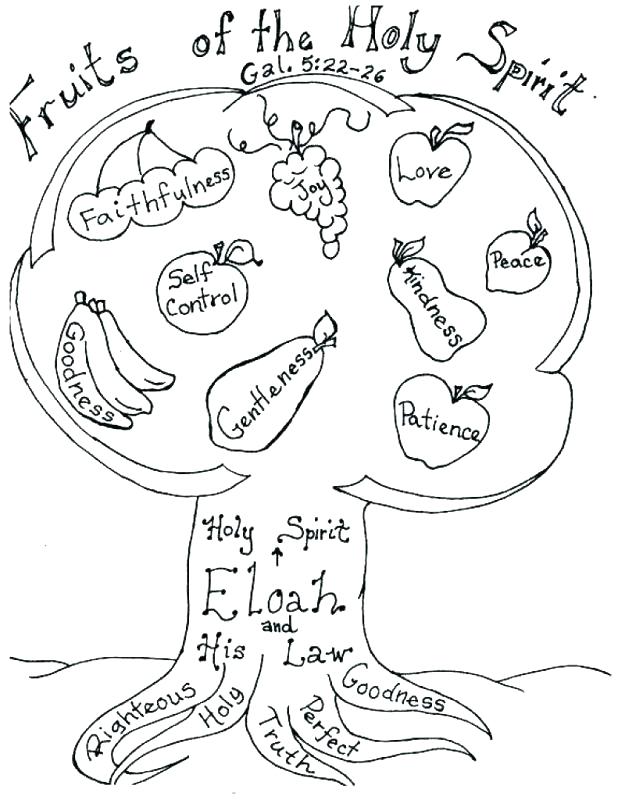 Fruits of the Holy Spirit
Gal. 5:22-26
Faithfulness
Joy
Love
Self
Control
Kindness
Peace
Goodness
Gentleness
Patience
Holy Spirit
↑
Eloah
and
His Law
Righteous
Holy
Truth
Perfect
Goodness